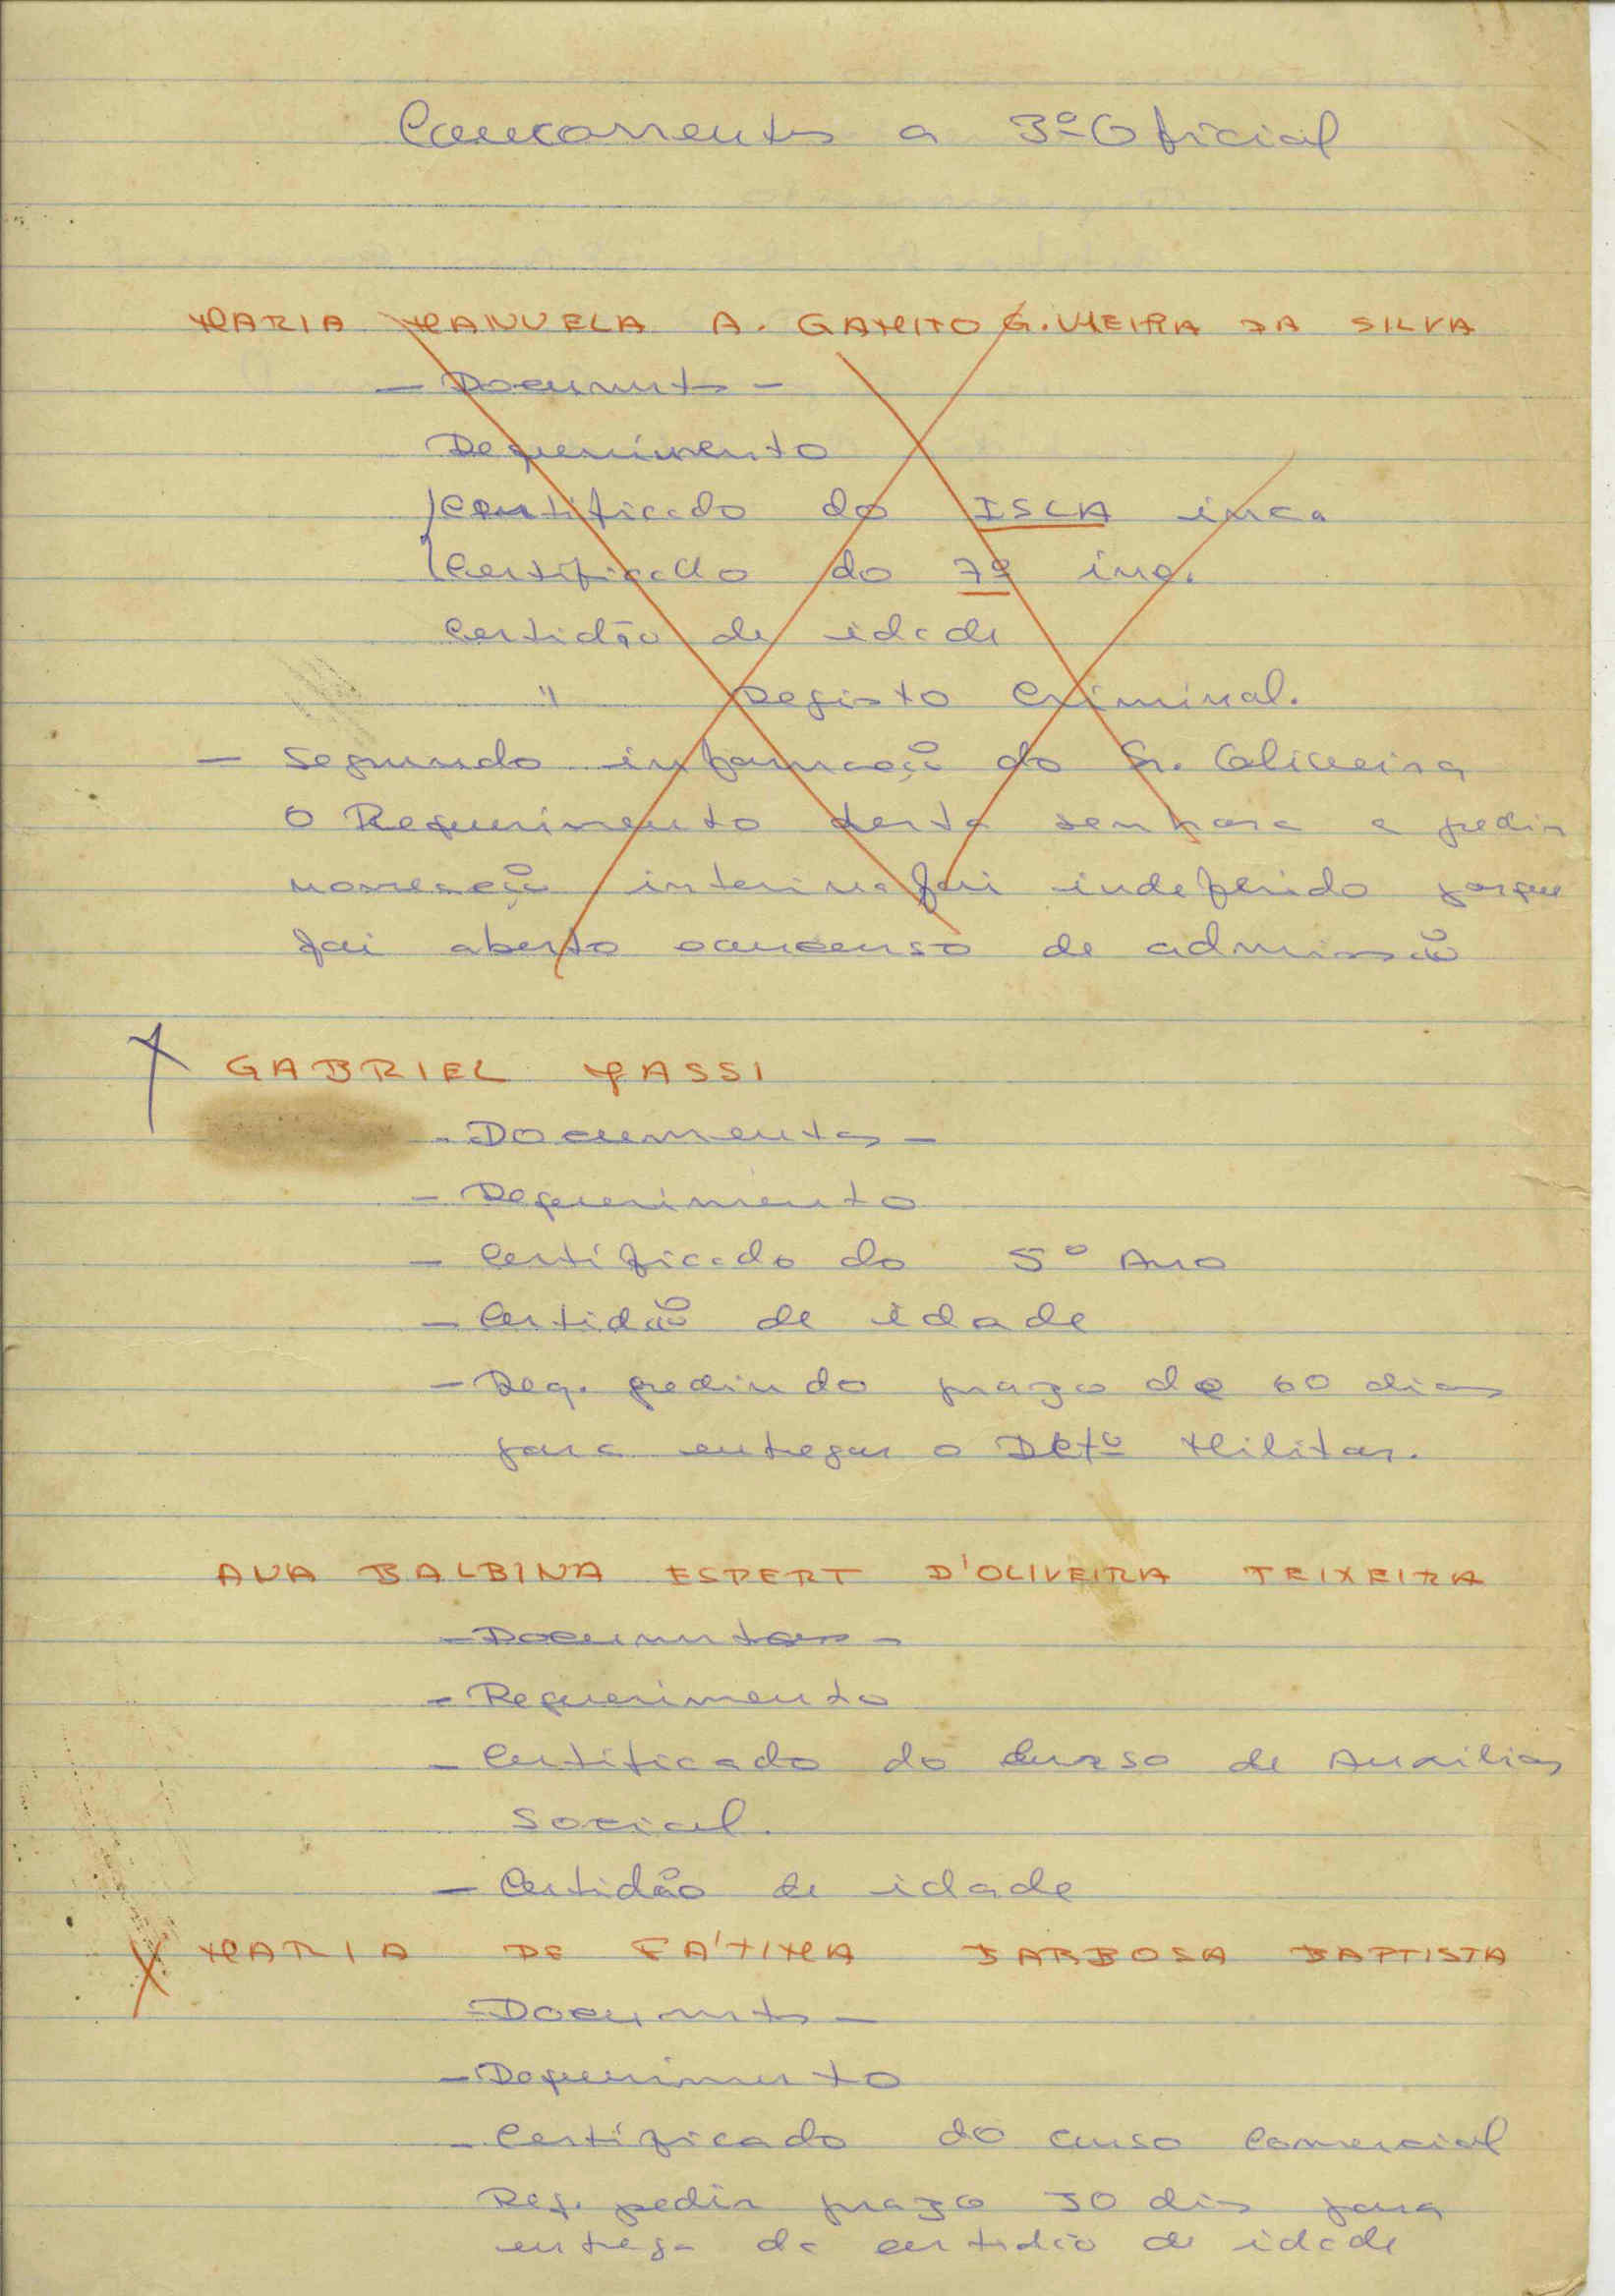 Concorrentes a 3º Oficial
MARIA MANUELA A. GAMITO G. VIEIRA DA SILVA
- Documentos -
Requerimento
Certificado do ISCA inc.
Certificado do 7º inc.
Certidão de idade
" Registo Criminal.
- Segundo informação do Sr. Oliveira
O Requerimento desta senhora a pedir
nomeação interina foi indeferido porque
foi aberto concurso de admissão
GABRIEL MASSI
- Documentos -
- Requerimento
- Certificado do 5º Ano
- Certidão de idade
- Req. pedindo prazo de 60 dias
para entregar o Dctº Militar.
ANA BALBINA ESPERT D'OLIVEIRA TEIXEIRA
- Documentos -
- Requerimento
- Certificado do Curso de Auxiliar
Social.
- Certidão de idade
MARIA DE FÁTIMA BARBOSA BAPTISTA
- Documentos -
- Requerimento
- Certificado do curso Comercial
Req. pedir prazo 30 dias para
entrega da certidão de idade